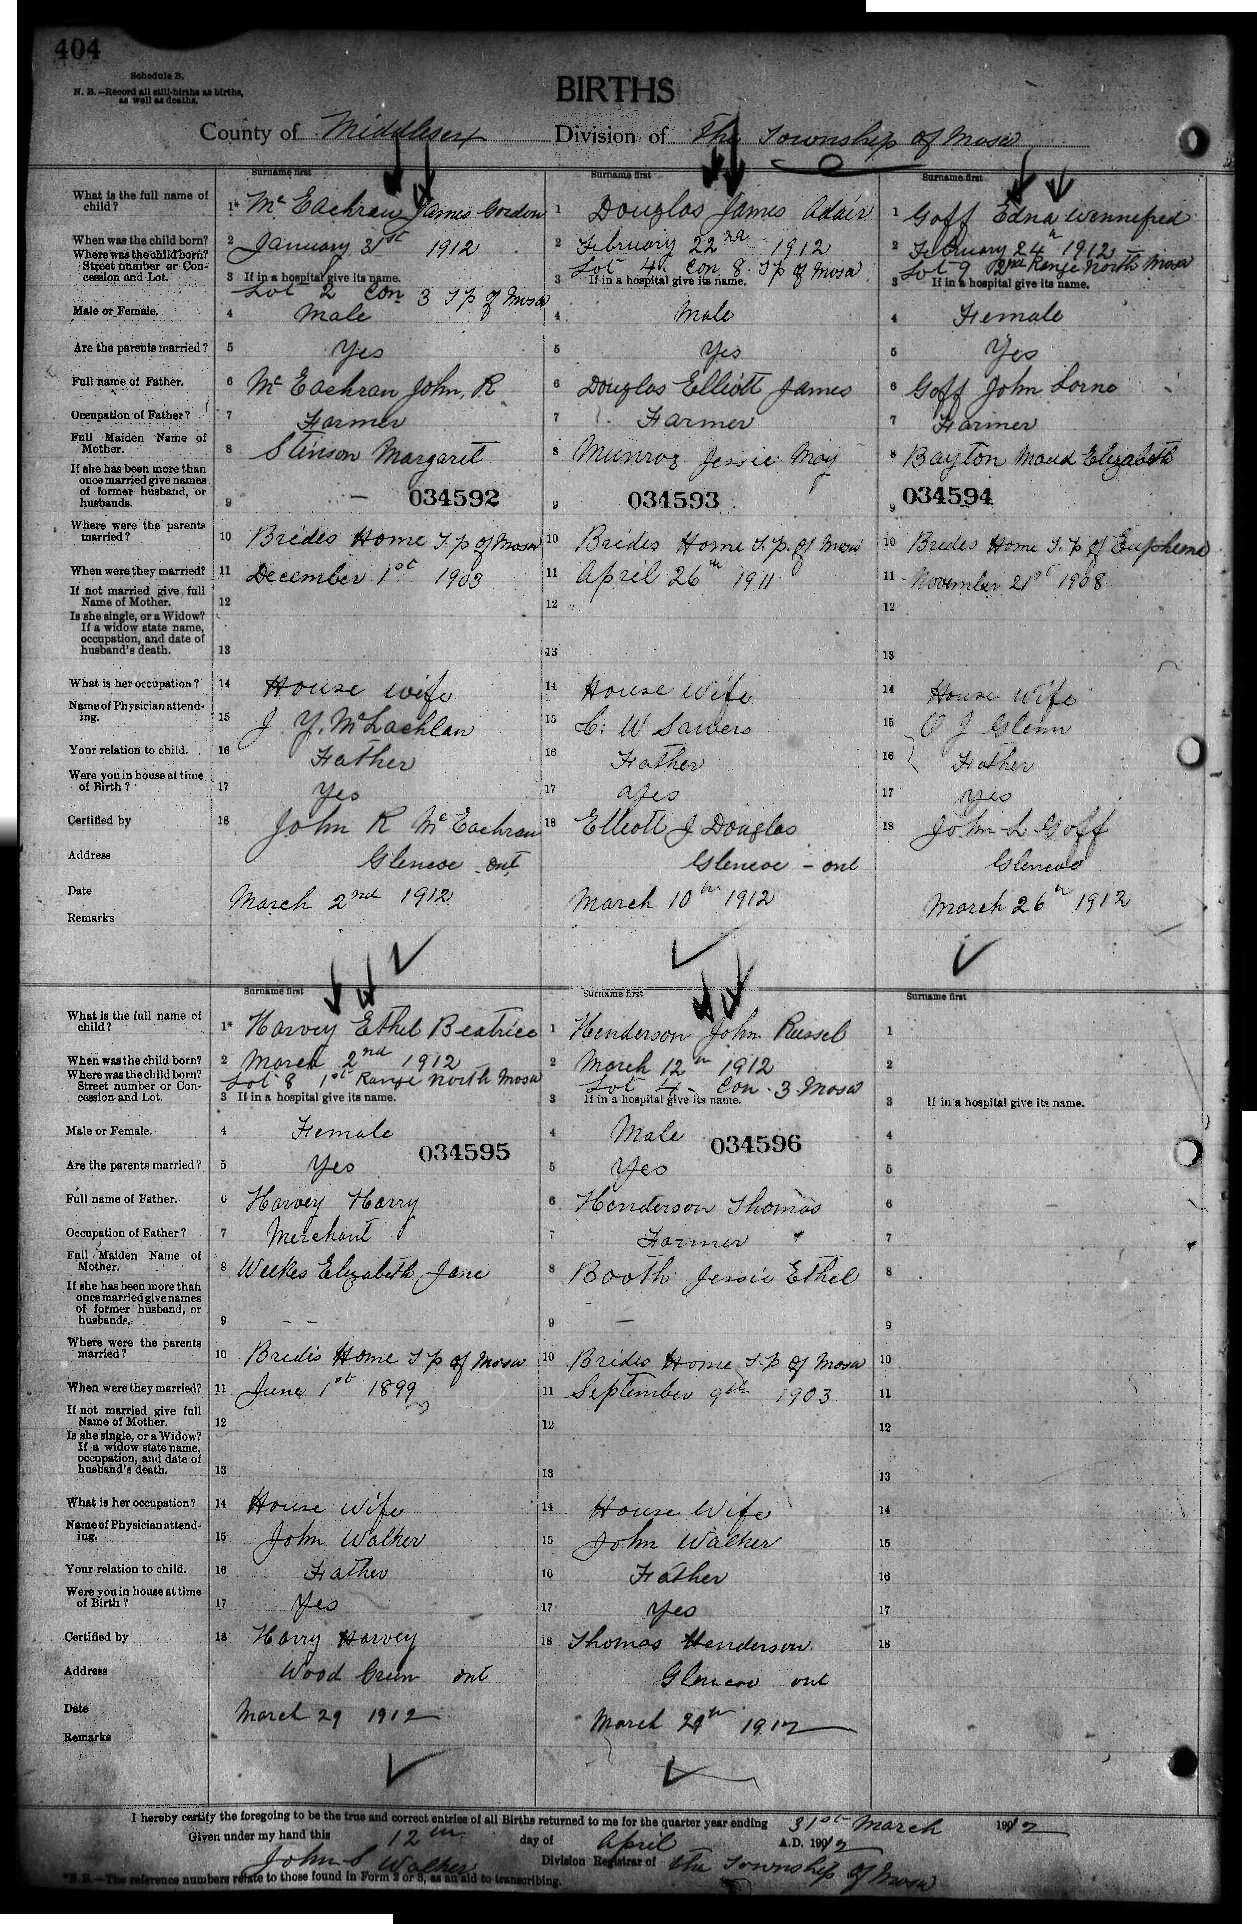 404
Schedule B.
N. B.—Record all still-births as births,
as well as deaths.
BIRTHS
County of Middlesex Division of The Township of Mosa
Surname first Surname first Surname first
What is the full name of child? 1* McEachran James Gordon 1 Douglas James Adair 1 Goff Edna Wennefred
When was the child born? 2 January 31st 1912 2 February 22nd 1912 2 February 24th 1912
Where was the child born? Street number or Concession and Lot. 3 If in a hospital give its name. Lot 2 Con 3 Tp of Mosa 3 Lot 4 Con 8 Tp of Mosa If in a hospital give its name. 3 Lot 9 2nd Range North Mosa If in a hospital give its name.
Male or Female. 4 Male 4 Male 4 Female
Are the parents married? 5 Yes 5 Yes 5 Yes
Full name of Father. 6 McEachran John, R 6 Douglas Elliott James 6 Goff John Lorne
Occupation of Father? 7 Farmer 7 Farmer 7 Farmer
Full Maiden Name of Mother. 8 Stinson Margaret 8 Munroe Jessie May 8 Bayton Maud Elizabeth
If she has been more than once married give names of former husband, or husbands. 9 — 034592 9 034593 9 034594
Where were the parents married? 10 Brides Home Tp of Mosa 10 Brides Home Tp. of Mosa 10 Brides Home Tp of Euphemia
When were they married? 11 December 1st 1903 11 April 26th 1911 11 November 21st 1908
If not married give full Name of Mother. 12 12 12
Is she single, or a Widow? If a widow state name, occupation, and date of husband's death. 13 13 13
What is her occupation? 14 House wife 14 House Wife 14 House Wife
Name of Physician attending. 15 J. Y. McLachlan 15 C. W Sawers 15 O J Glenn
Your relation to child. 16 Father 16 Father 16 Father
Were you in house at time of Birth? 17 Yes 17 Yes 17 Yes
Certified by 18 John R McEachran 18 Elliott J Douglas 18 John L Goff
Address Glencoe Ont Glencoe - Ont Glencoe
Date March 2nd 1912 March 10th 1912 March 26th 1912
Remarks
Surname first Surname first Surname first
What is the full name of child? 1* Harvey Ethel Beatrice 1 Henderson John Russel 1
When was the child born? 2 March 2nd 1912 2 March 12th 1912 2
Where was the child born? Street number or Concession and Lot. 3 Lot 8 1st Range North Mosa If in a hospital give its name. 3 Lot 4 - Con - 3 Mosa If in a hospital give its name. 3 If in a hospital give its name.
Male or Female. 4 Female 4 Male 4
034595 034596
Are the parents married? 5 Yes 5 Yes 5
Full name of Father. 6 Harvey Harry 6 Henderson Thomas 6
Occupation of Father? 7 Merchant 7 Farmer 7
Full Maiden Name of Mother. 8 Weekes Elizabeth Jane 8 Booth Jessie Ethel 8
If she has been more than once married give names of former husband, or husbands. 9 - - 9 — 9
Where were the parents married? 10 Brides Home Tp of Mosa 10 Brides Home Tp of Mosa 10
When were they married? 11 June 1st 1899 11 September 9th 1903 11
If not married give full Name of Mother. 12 12 12
Is she single, or a Widow? If a widow state name, occupation, and date of husband's death. 13 13 13
What is her occupation? 14 House Wife 14 House Wife 14
Name of Physician attending. 15 John Walker 15 John Walker 15
Your relation to child. 16 Father 16 Father 16
Were you in house at time of Birth? 17 Yes 17 Yes 17
Certified by 18 Harry Harvey 18 Thomas Henderson 18
Address Wood Green Ont Glencoe Ont
Date March 29 1912 March 29th 1912
Remarks
I hereby certify the foregoing to be the true and correct entries of all Births returned to me for the quarter year ending 31st March 1912
Given under my hand this 12th day of April A.D. 1912
John S Walker Division Registrar of The Township of Mosa
*N.B.—The reference numbers relate to those found in Form 2 or 3, as an aid to transcribing.